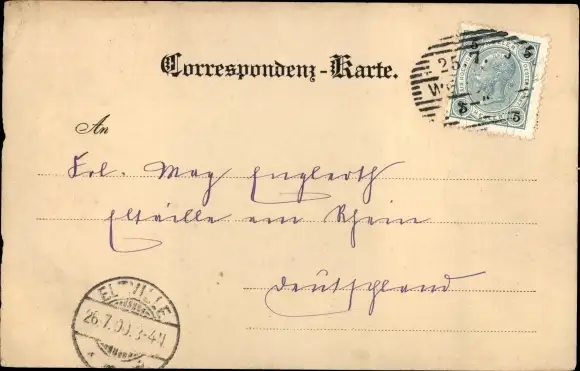 Correspondenz-Karte.
25.7.
W
5 5
5 5
An
Frl. May Englerth
Eltville am Rhein
Deutschland
ELTVILLE
26.7.00.3-4N